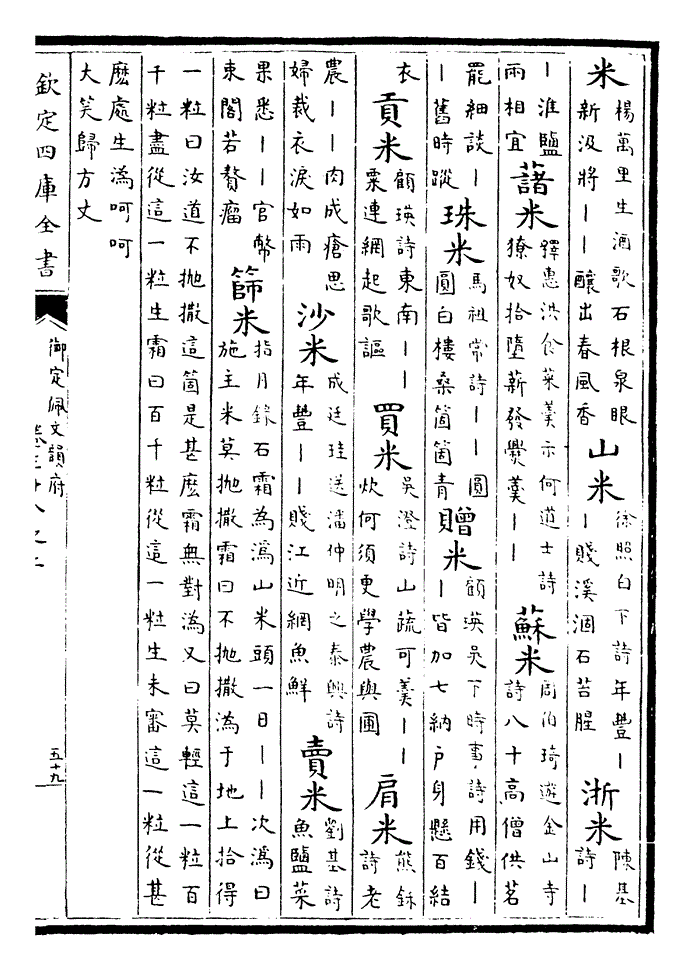 米 楊萬里生酒歌石根泉眼新汲將丨丨釀出春風香 山米 徐照白下詩年豐丨丨賤溪涸石苔腥 浙米 陳基詩丨
丨淮鹽兩相宜 藷米 釋惠洪食菜羹示何道士詩獠奴拾墮薪發爨羹丨丨 蘇米 周伯琦遊金山寺詩八十高僧供茗
罷細談丨丨舊時蹤 珠米 馬祖常詩丨丨圓圓白樓桑箇箇青 贈米 顧瑛吳下時事詩用錢丨丨皆加七納戶身懸百結
衣 貢米 顧瑛詩東南丨丨粟連網起歌謳 買米 吳澄詩山蔬可羹丨丨炊何須更學農與圃 肩米 熊鉌詩老
農丨丨肉成瘡思婦裁衣淚如雨 沙米 成廷珪送潘仲明之泰興詩年豐丨丨賤江近網魚鮮 賣米 劉基詩魚鹽菜
果悉丨丨官幣束閣若贅瘤 篩米 指月錄石霜為溈山米頭一日丨丨次溈曰施主米莫拋撒霜曰不拋撒溈于地上拾得
一粒曰汝道不拋撒這箇是甚麽霜無對溈又曰莫輕這一粒百
千粒盡從這一粒生霜曰百千粒從這一粒生未審這一粒從甚
麽處生溈呵呵
大笑歸方丈
欽定四庫全書
御定佩文韻府
五十九